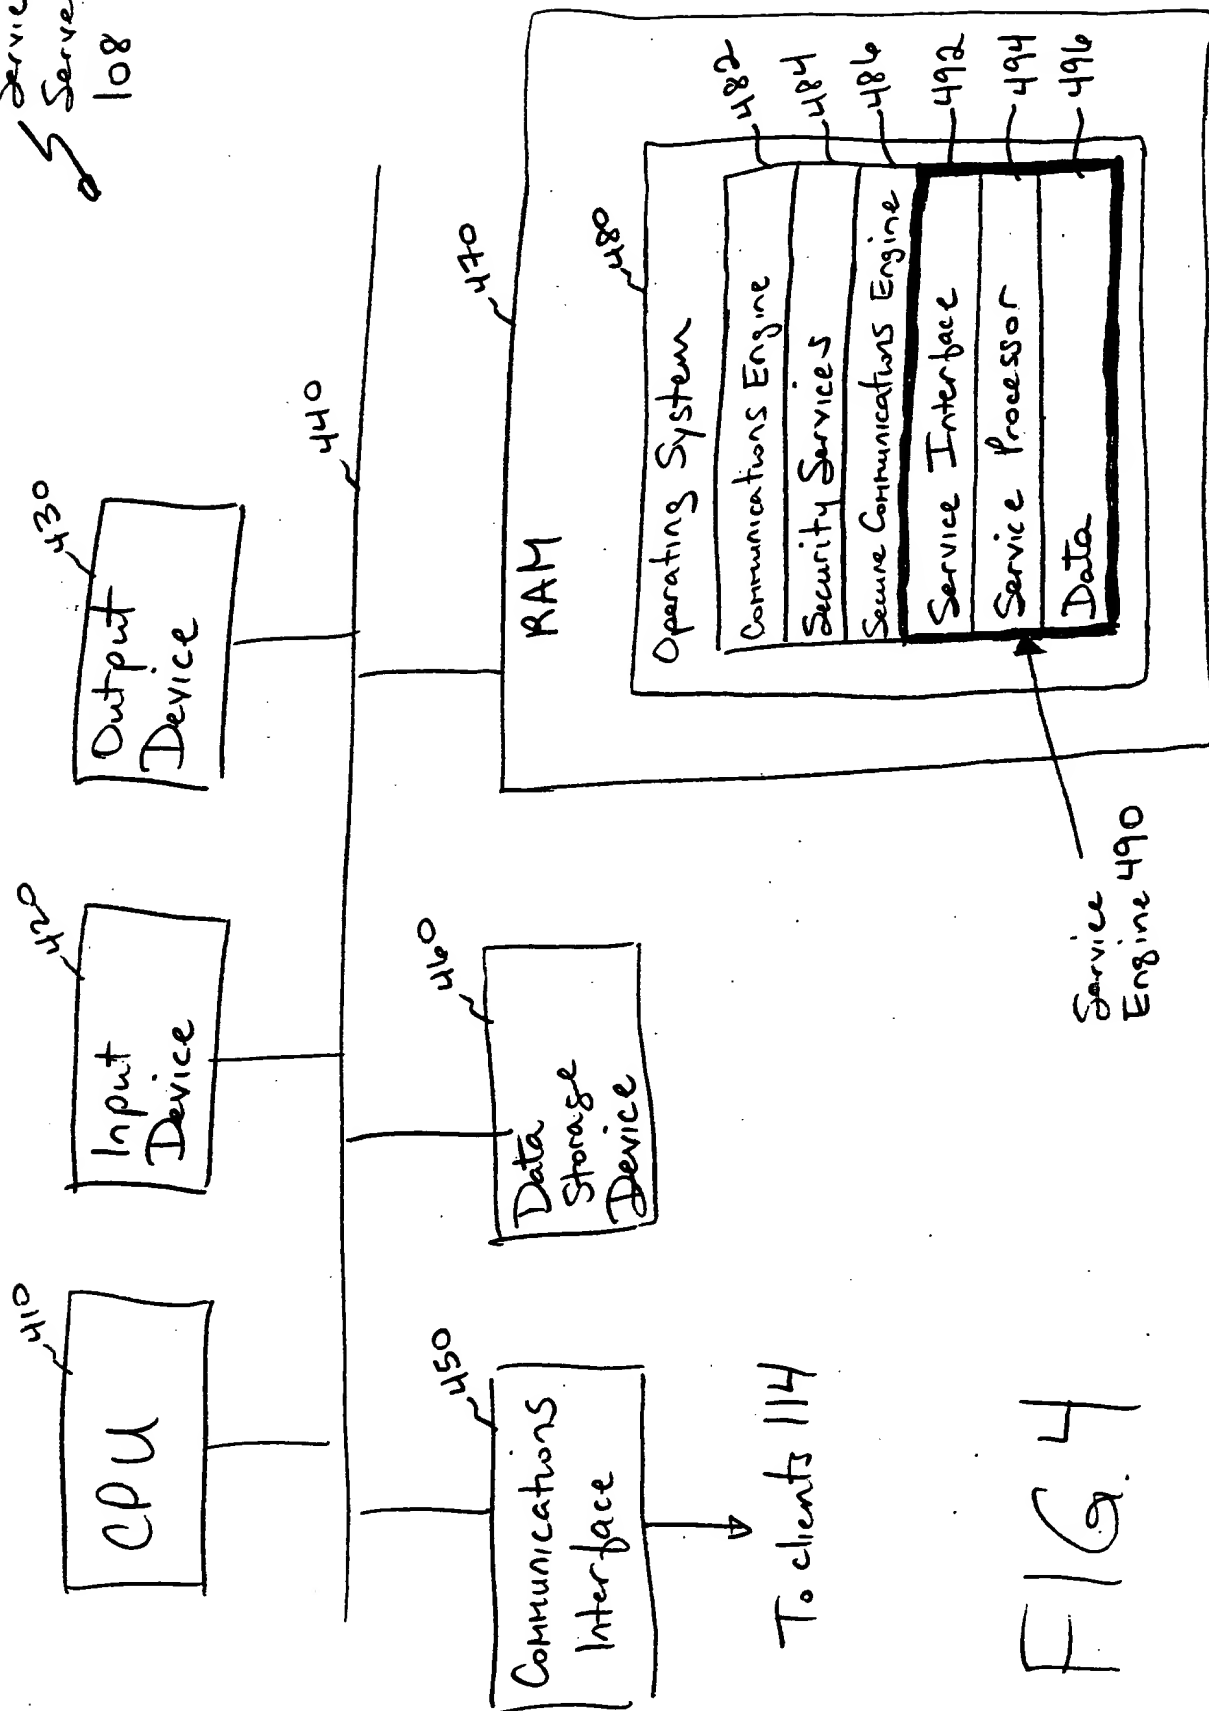 Server
108
CPU
410
Input
Device
420
Output
Device
430
440
Communications
Interface
450
To clients 114
Data
Storage
Device
460
RAM
470
Operating System
480
Communications Engine
482
Security Services
484
Secure Communications Engine
486
Service Interface
492
Service Processor
494
Data
496
Service
Engine 490
FIG. 4